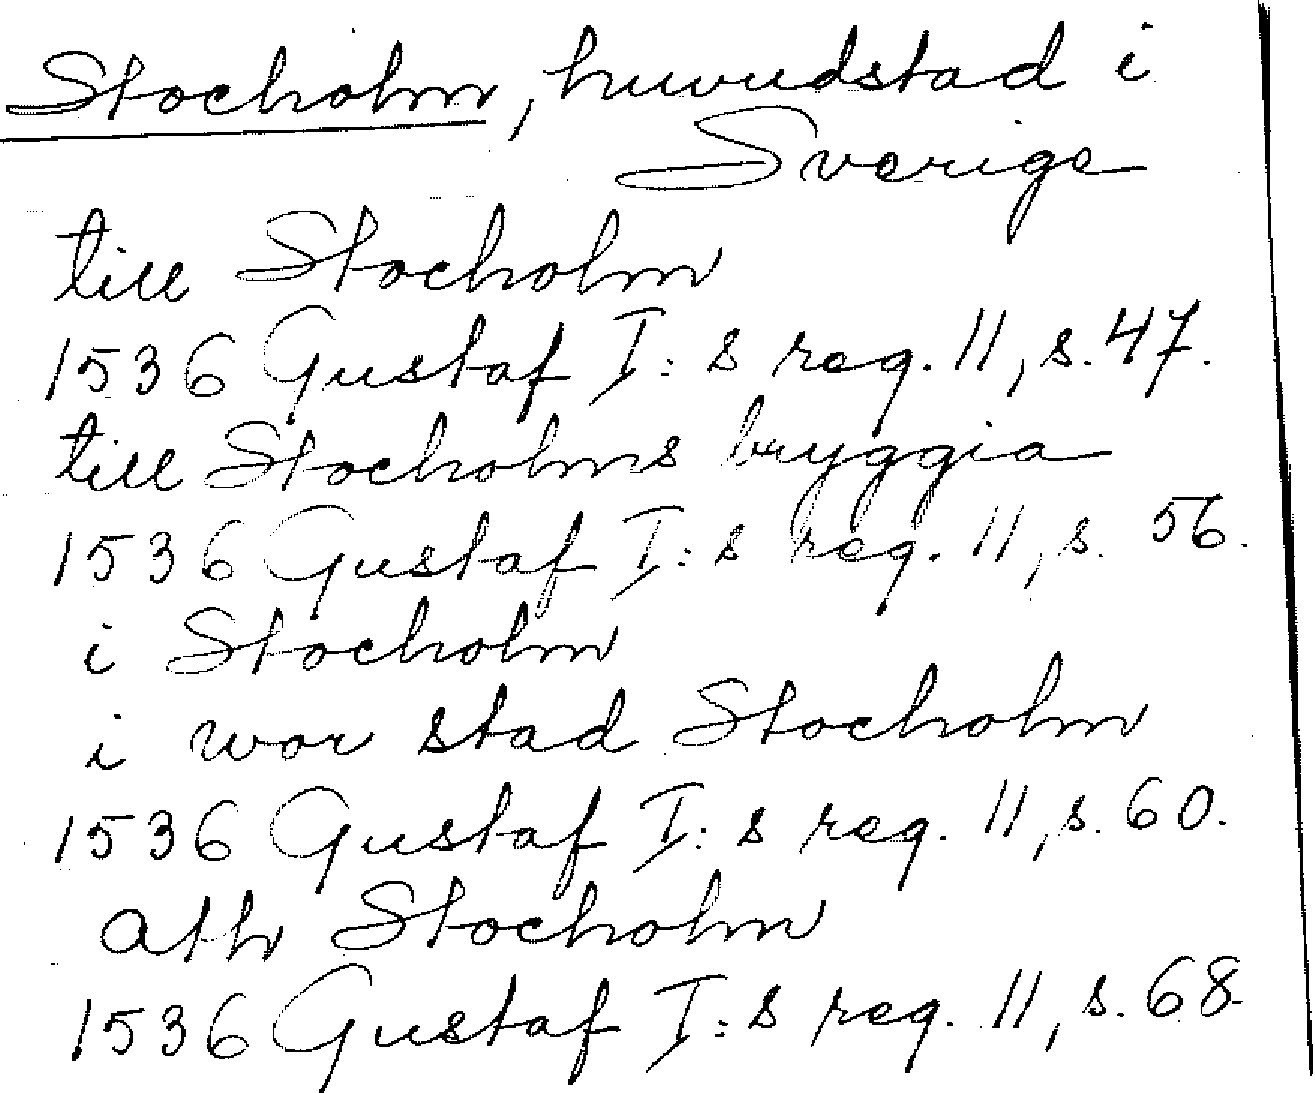 Stocholm, huvudstad i
Sverige
till Stocholm
1536 Gustaf I:s reg. 11, s. 47.
till Stocholms bryggia
1536 Gustaf I:s reg. 11, s. 56.
i Stocholm
i wor stad Stocholm
1536 Gustaf I:s reg. 11, s. 60.
ath Stocholm
1536 Gustaf I:s reg. 11, s. 68